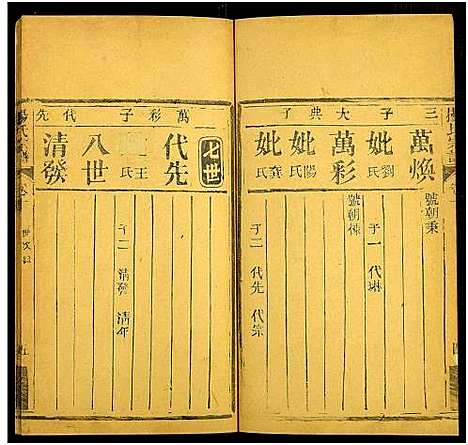 三子
大典子
萬煥
號朝秉
妣劉氏
子一 代琳
萬彩
號朝棟
妣陽氏
妣龔氏
子二 代先 代宗
萬彩子
代先
七世
代先
王氏
子二 清發 清年
八世
清發